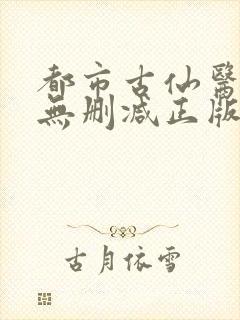 都市古仙醫
無刪減正版
古月依雪